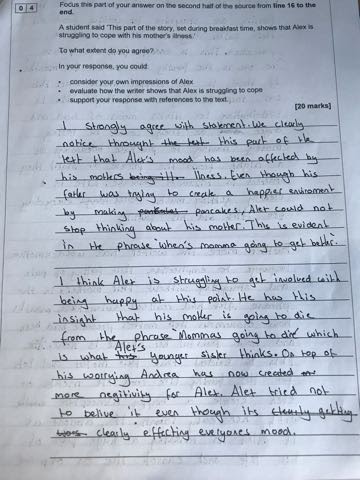 0 4
Focus this part of your answer on the second half of the source from line 16 to the
end.
A student said 'This part of the story, set during breakfast time, shows that Alex is
struggling to cope with his mother's illness.'
To what extent do you agree?
In your response, you could:
• consider your own impressions of Alex
• evaluate how the writer shows that Alex is struggling to cope
• support your response with references to the text.
[20 marks]
I strongly agree with statement. We clearly
notice throught the text this part of the
text that Alex's mood has been affected by
his mothers being ill. Illness. Even though his
father was trying to create a happier enviroment
by making pancakes, Alex could not
stop thinking about his mother. This is evident
in the phrase 'when's momma going to get better.
I think Alex is struggling to get involved with
being happy at this point. He has this
insight that his mother is going to die
from the phrase 'Mommas going to die' which
is what Alex's younger sister thinks. On top of
his worrying Andrea has now created
more negitivity for Alex. Alex tried not
to belive it even though its clearly getting
clearly effecting everyones mood.